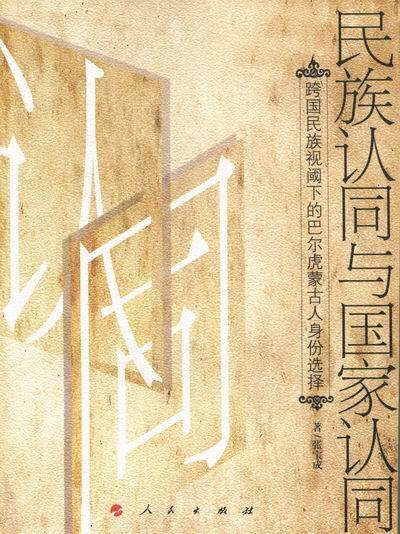 民族认同与国家认同
跨国民族视阈下的巴尔虎蒙古人身份选择
张宝成/著
认同
人民出版社